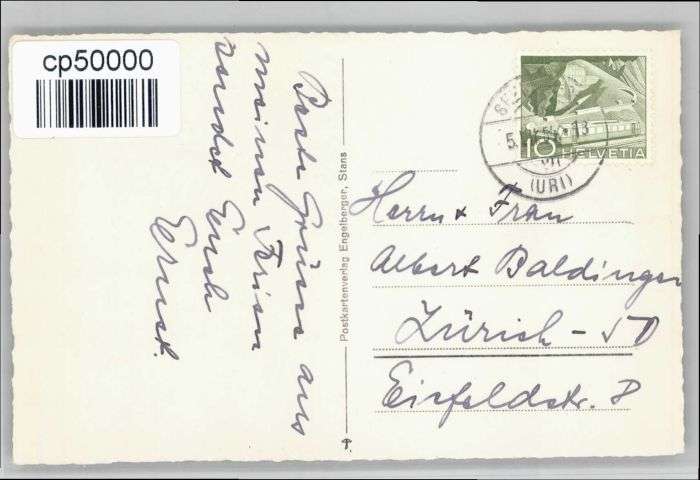 cp50000
Beste Grüsse aus
meinen Ferien
sendet Euch
Ernst.
Postkartenverlag Engelberger, Stans
10 HELVETIA
(URI)
Herrn & Frau
Albert Baldinger
Zürich - 50
Eisfeldstr. 8